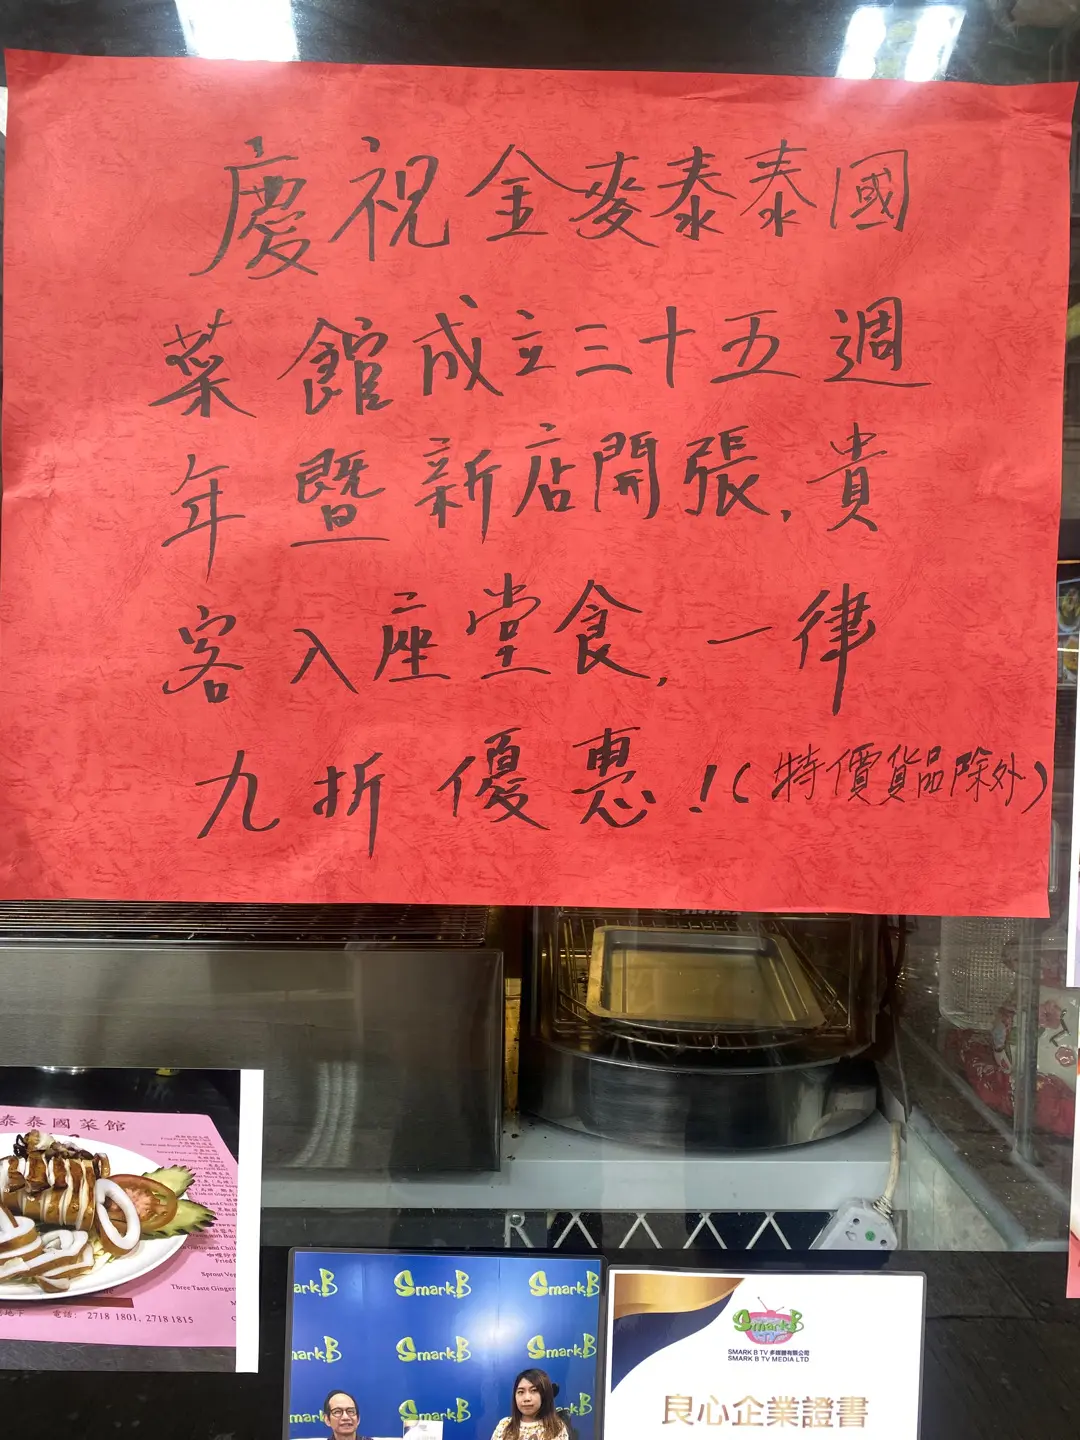 慶祝金麥泰泰國
菜館成立三十五週
年暨新店開張，貴
客入座堂食，一律
九折優惠！（特價貨品除外）
泰泰國菜館
Three Taste Ginger
地下 電話：2718 1801, 2718 1815
arkB SmarkB SmarkB
markB SmarkB SmarkB
mark SmarkB
SmarkB
SMARK B TV 多媒體有限公司
SMARK B TV MEDIA LTD
良心企業證書